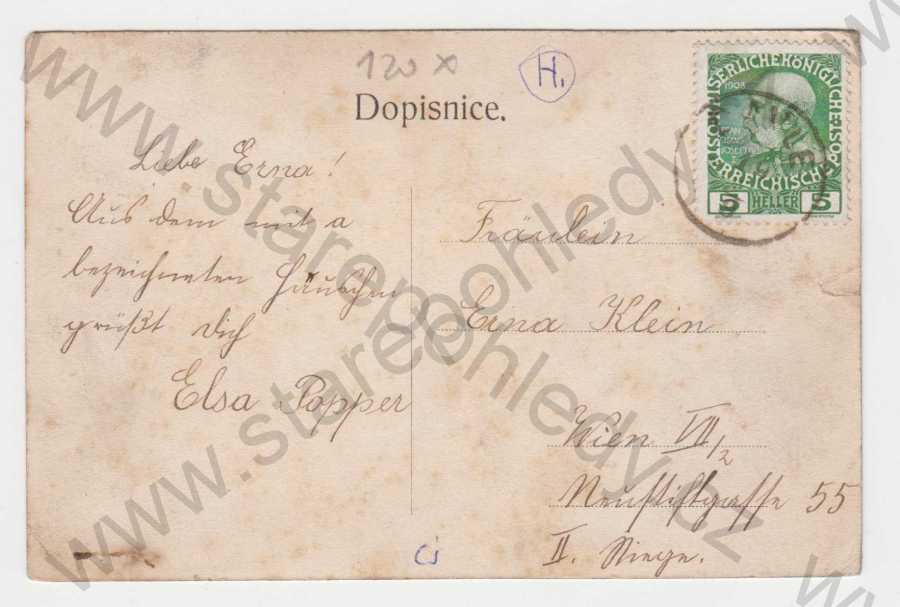 120 x
H.
Dopisnice.
KAISERLICHE KÖNIGLICHE POST
1908
ÖSTERREICHISCHE
5 HELLER 5
Liebe Erna!
Aus dem mit a
bezeichneten Häuschen
grüßt dich
Elsa Popper
Fräulein
Erna Klein
Wien VII/2
Neustiftgasse 55
II. Stiege.
www.starepohledy.cz
www.starepohledy.cz